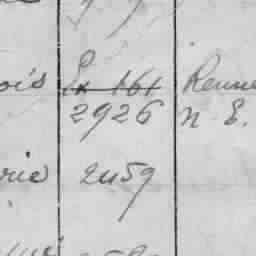 ois Ex 161 Renne
2926 N. E.
rie 2459